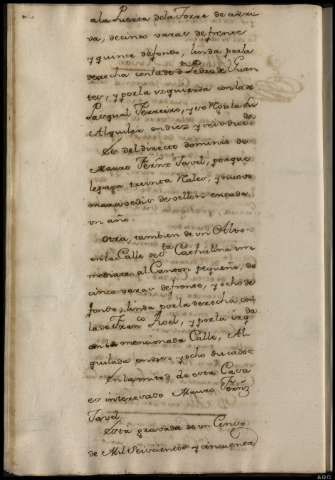 a la Puerta de la Torre de arri
va, de cinco varas de frente
y quince de fondo, linda por la
derecha con la de Pedro de Fuen
tes, y por la izquierda con la de
Pasqual Ferreiro,
Alquiler en diez y ocho duc.os
Es del directo dominio de
Mauro Ferñz Tavel, porque
le paga treinta Reales, y nueve
maravedis de vellon en cada
un año
Otra, tambien de un Alto
en la Calle de la Cachilina in
mediata al Canton pequeño, de
cinco varas de frente, y ocho de
fondo, linda por la derecha con
la de Fran.co Roel, y por la izq.da
con la mencionada Calle, Al
quilada en diez y ocho ducados
En la mitad de esta Casa
es interesado Mauro Ferñz
Tavel
Esta gravada de un Censo
de Mil Seiscientos y cinquenta